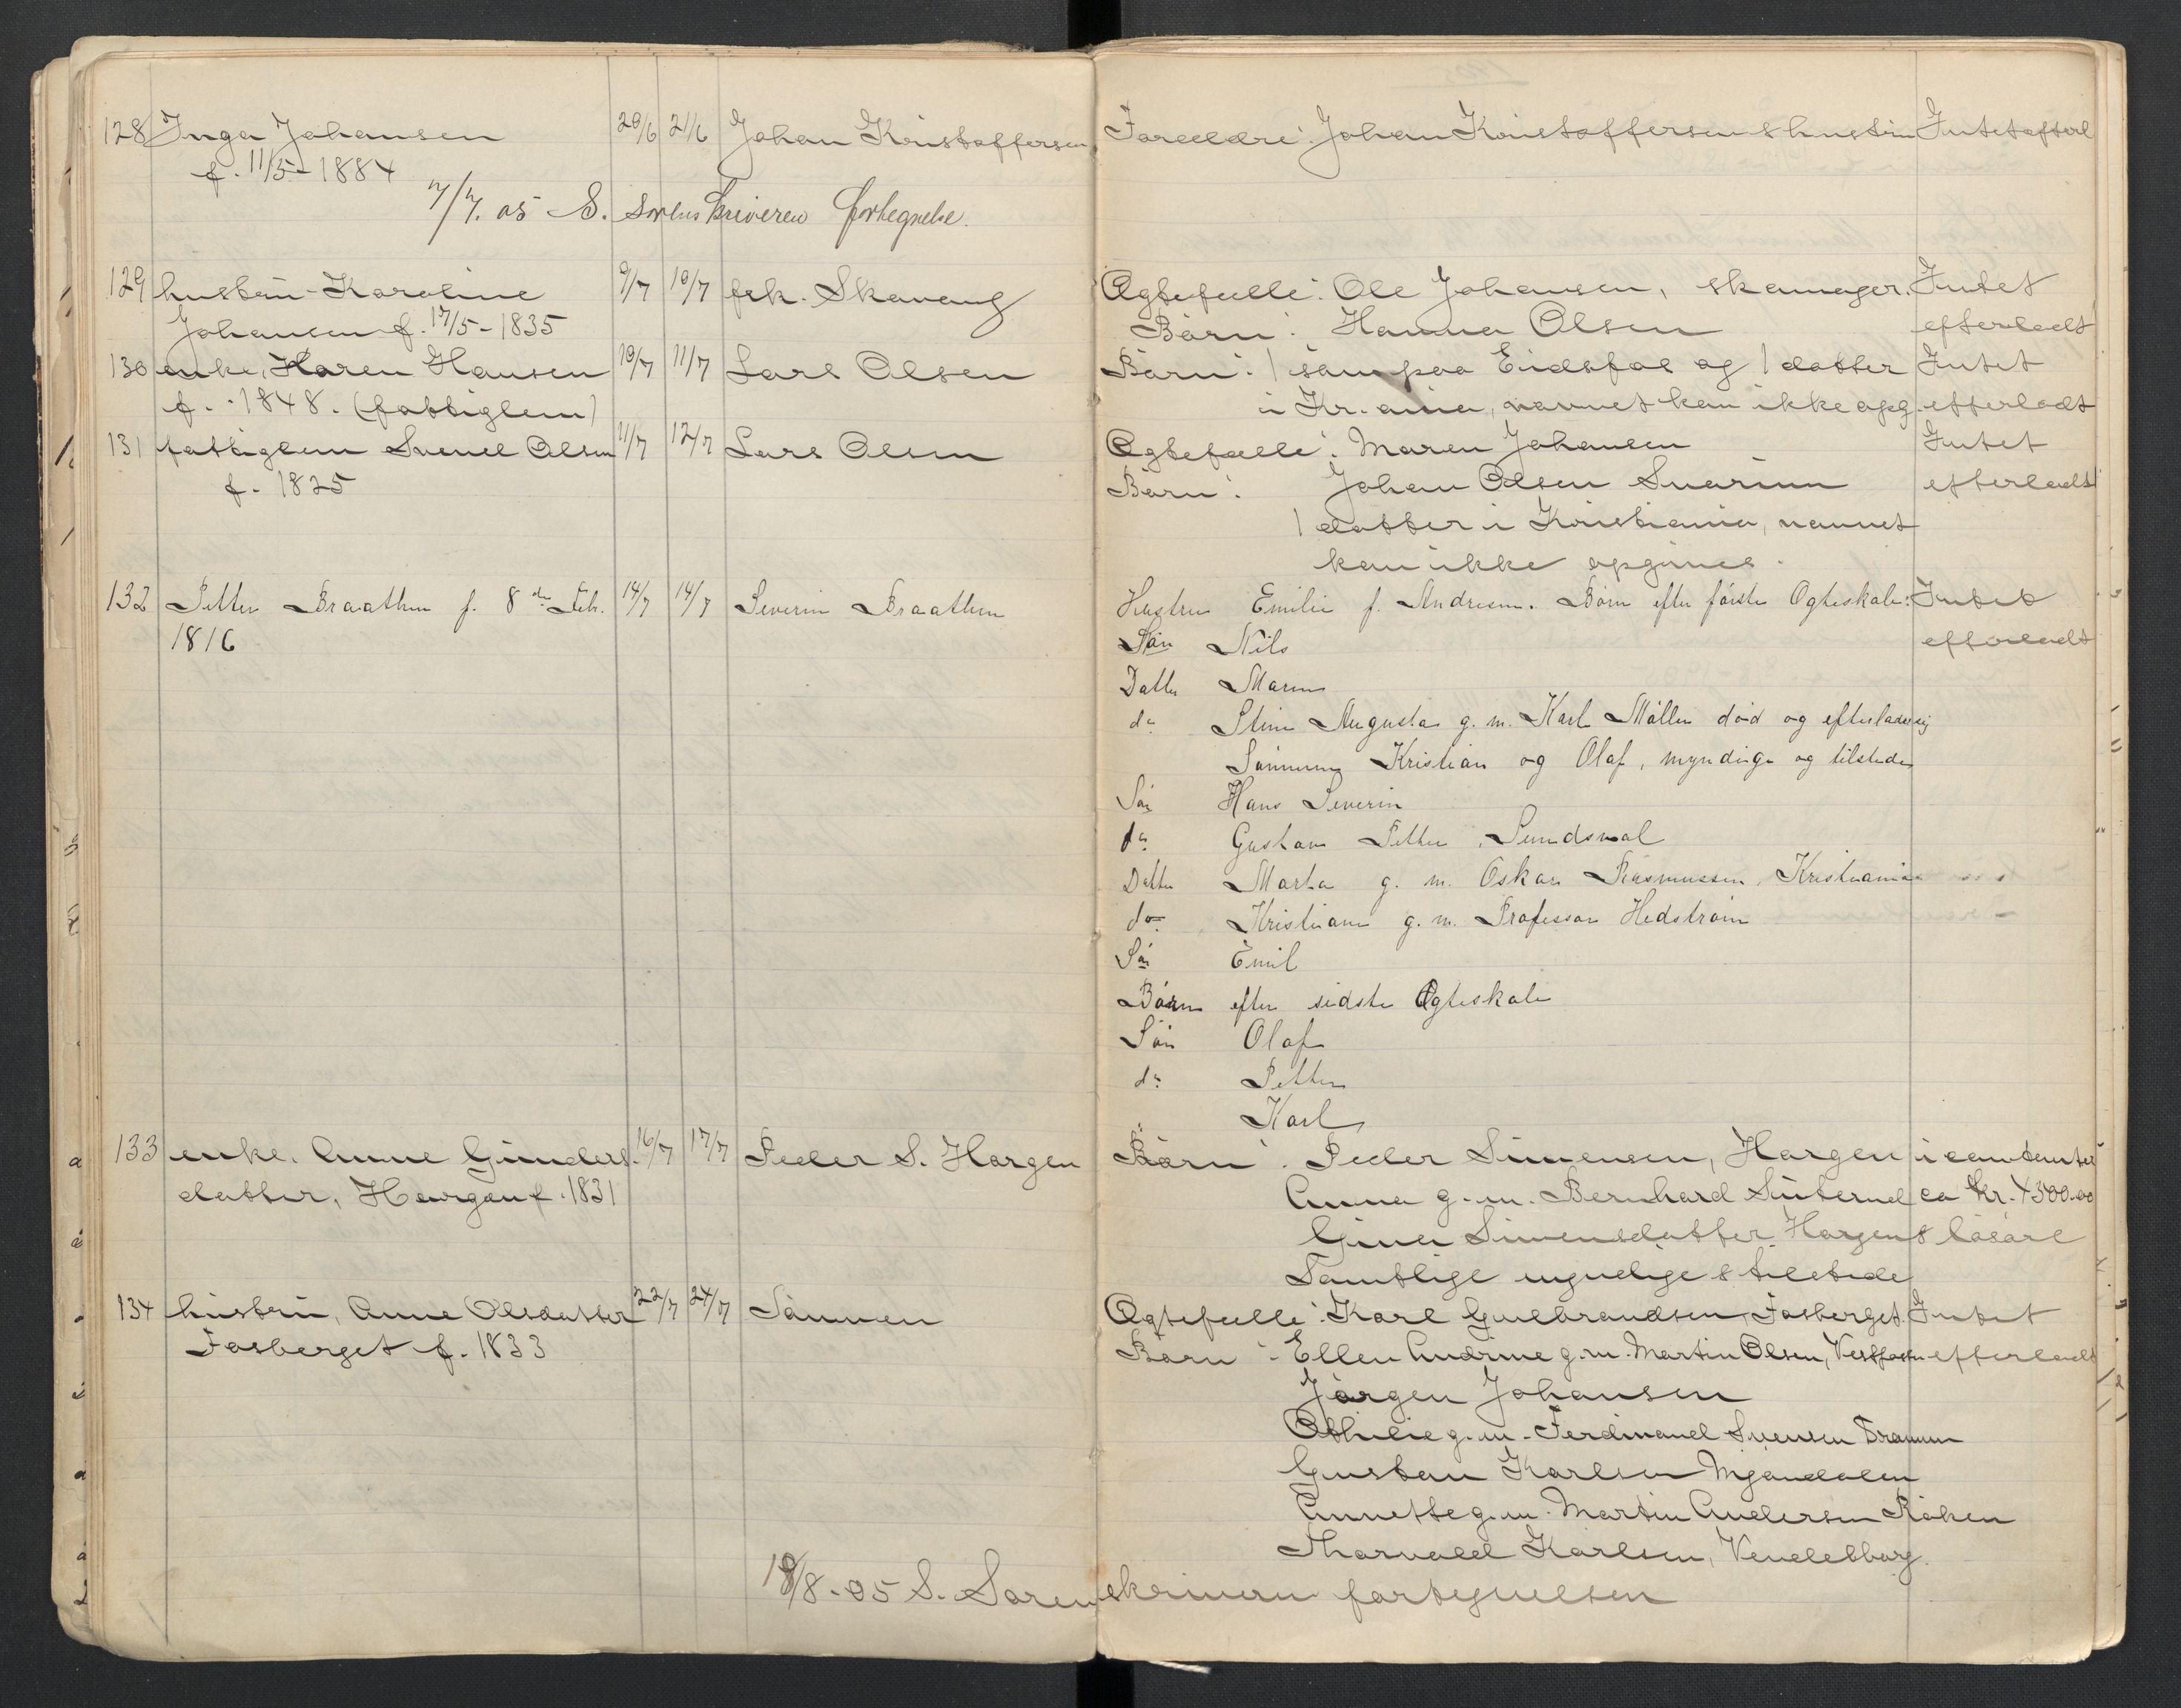 128 Inga Johansen 20/6 21/6 Johan Kristoffersen Foreldre: Johan Kristoffersen & hustru Intet efterl
f. 11/5 - 1884
7/7. 05 S. Sorenskriveren fortegnelse.
129 hustru Karoline 9/7 10/7 frk. Skavang Ægtefælle: Ole Johansen, skomager. Intet
Johansen f. 17/5 - 1835 Børn: Hanna Olsen efterladt
130 enke, Karen Hansen 10/7 11/7 Lars Olsen Børn: 1 søn paa Eidsfos og 1 datter Intet
f. 1848. (fattiglem) i Kr.ania, navnet kan ikke opg. efterladt
131 fattiglem Svend Olsen 11/7 12/7 Lars Olsen Ægtefælle: Maren Johansen Intet
f. 1825 Børn: Johan Olsen efterladt
1 datter i Kristiania, navnet
kan ikke opgives.
132 Petter Braathen f. 8de Feb. 14/7 14/7 Severin Braathen Hustru Emilie f. Andresen. Børn efter første Ægteskab: Intet
1816 Søn Nils efterladt
Datter Maren
do Stine Augusta g. m. Karl Møller død og efterlader sig
Sønnerne Kristian og Olaf, myndige og tilstede
Søn Hans Severin
do Gustav Petter, Sundsval
Datter Marta g. m. Oskar Rasmussen, Kristiania
do Kristiane g. m. Professor Hedstrøm
Søn Emil
Børn efter sidste Ægteskab
Søn Olaf
do Petter
" Karl
133 enke. Anne Gunders- 16/7 17/7 Peder S. Horgen Børn: Peder Simensen, Horgen i contanter
datter, Horgen f. 1831 Anna g. m. Bernhard ca kr. 4300.00
Gina Simensdatter Horgen & løsøre
Samtlige myndige & tilstede
134 hustru, Anne Olsdatter 22/7 24/7 Sønnen Ægtefælle: Karl Gulbrandsen, Fosberget. Intet
Fosberget f. 1833 Børn: Ellen Andrine g. m. Martin Olsen, Vestfossen efterladt
Jørgen Johansen
Othilie g. m. Ferdinand Svensen Drammen
Gustav Karlsen Mjøndalen
Annette g. m. Martin Andersen Røken
Thorvald Karlsen, Vendelborg.
18/8 - 05 S. Sorenskriveren fortegnelsen